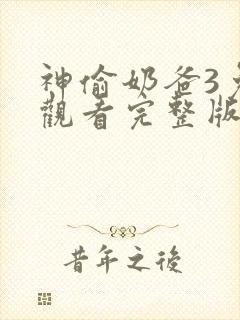 神偷奶爸3
觀看完整版
昔年之後